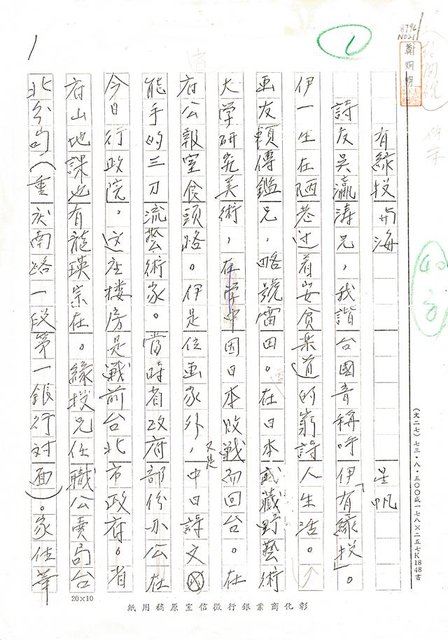 有緣投州海
吳帆
詩友吳瀛濤兄，我諧台國音稱呼伊「有緣投」。
伊一生在陋巷过着安貧樂道的窮詩人生活。
画友賴傳鑑兄，略號雷田。在日本武藏野藝術
大学研究美術，在学中因日本敗战而回台。在
府公報室食頭路。伊是位画家外，又是中日詩文
能手的三刀流藝術家。當時省政府部份办公在
今日行政院。这座楼房是戰前台北市政府。省
府山地課也有龍瑛宗在。緣投兄任職公賣局台
北分局（重慶南路一段第一銀行对面）。家住華
20×10
彰化商業銀行徵信室原稿用紙